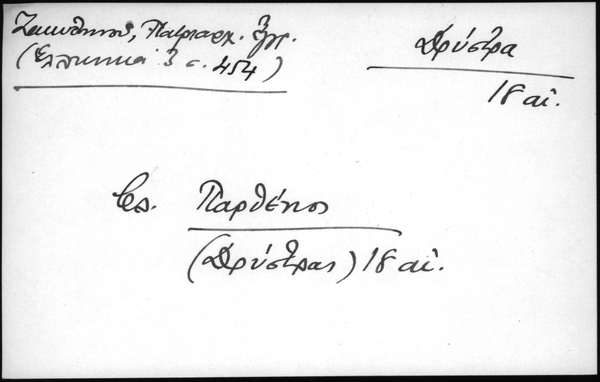 Ζακυθηνοῦ, Πατριαρχ. ἔγγ.
(Ἑλληνικά 3 σ. 454)
Δρύστρα
18 αἰ.
Παρθένιος
(Δρύστρας) 18 αἰ.